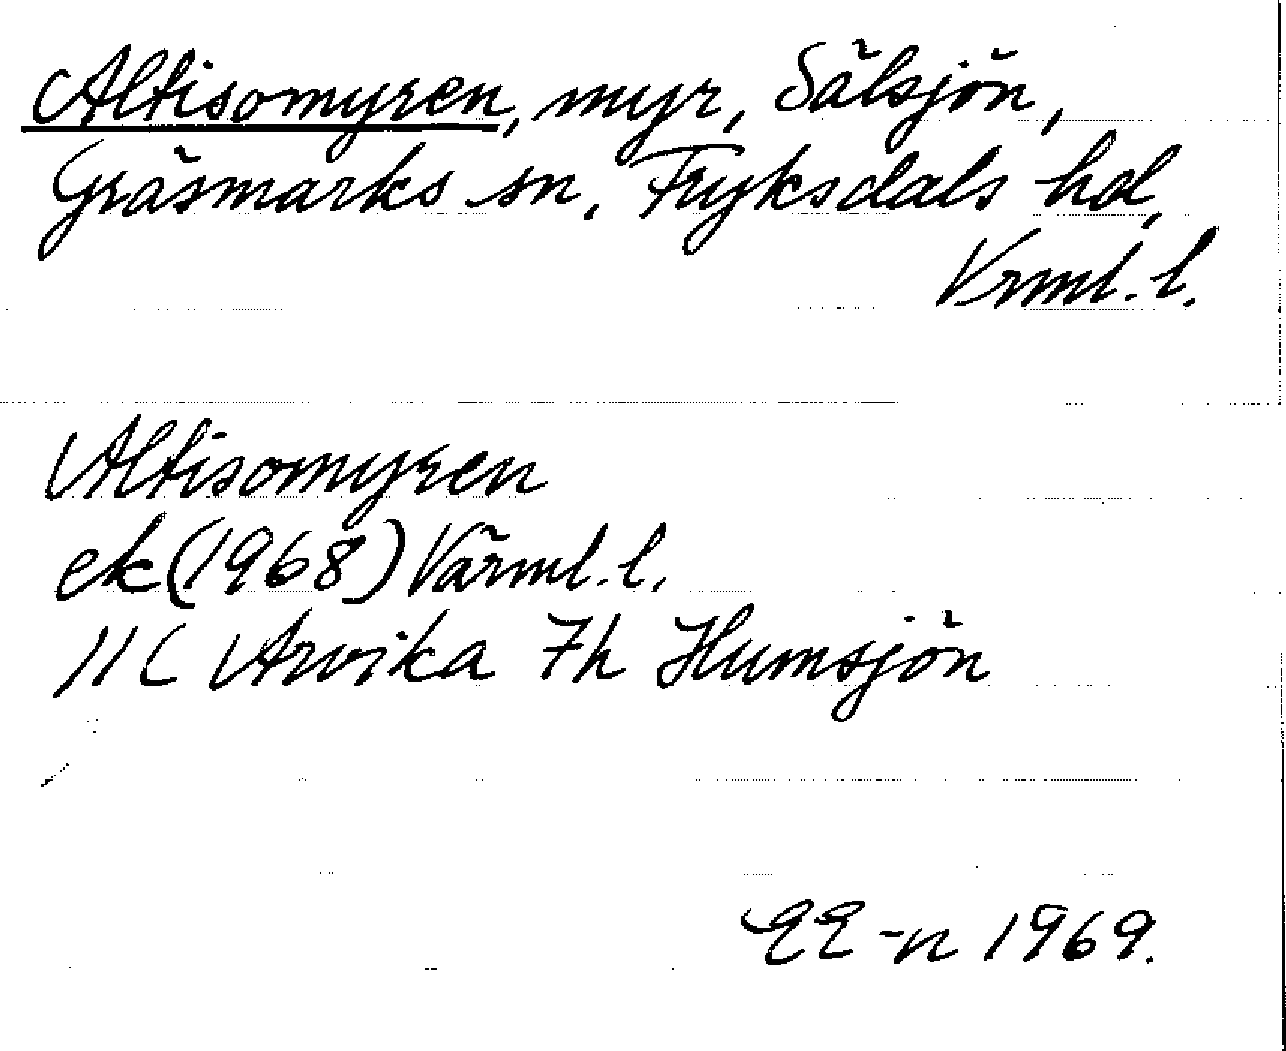 Altisomyren, myr, Sälsjön,
Gräsmarks sn, Fryksdals hd,
Vrml. l.
Altisomyren
ek (1968) Värml. l.
11C Arvika 7h Humsjön
EE-n 1969.